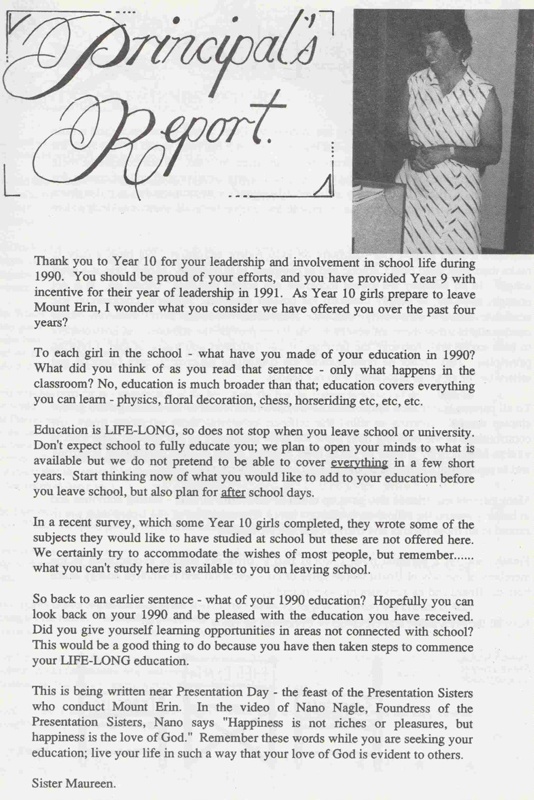 Principal's
Report.
Thank you to Year 10 for your leadership and involvement in school life during
1990. You should be proud of your efforts, and you have provided Year 9 with
incentive for their year of leadership in 1991. As Year 10 girls prepare to leave
Mount Erin, I wonder what you consider we have offered you over the past four
years?
To each girl in the school - what have you made of your education in 1990?
What did you think of as you read that sentence - only what happens in the
classroom? No, education is much broader than that; education covers everything
you can learn - physics, floral decoration, chess, horseriding etc, etc, etc.
Education is LIFE-LONG, so does not stop when you leave school or university.
Don't expect school to fully educate you; we plan to open your minds to what is
available but we do not pretend to be able to cover everything in a few short
years. Start thinking now of what you would like to add to your education before
you leave school, but also plan for after school days.
In a recent survey, which some Year 10 girls completed, they wrote some of the
subjects they would like to have studied at school but these are not offered here.
We certainly try to accommodate the wishes of most people, but remember......
what you can't study here is available to you on leaving school.
So back to an earlier sentence - what of your 1990 education? Hopefully you can
look back on your 1990 and be pleased with the education you have received.
Did you give yourself learning opportunities in areas not connected with school?
This would be a good thing to do because you have then taken steps to commence
your LIFE-LONG education.
This is being written near Presentation Day - the feast of the Presentation Sisters
who conduct Mount Erin. In the video of Nano Nagle, Foundress of the
Presentation Sisters, Nano says "Happiness is not riches or pleasures, but
happiness is the love of God." Remember these words while you are seeking your
education; live your life in such a way that your love of God is evident to others.
Sister Maureen.